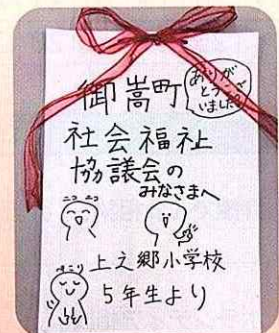 御嵩町
ありが
とうござ
いました!
社会福祉
協議会の
みなさまへ
ニコニコ
上之郷小学校
ペコリ
5年生より